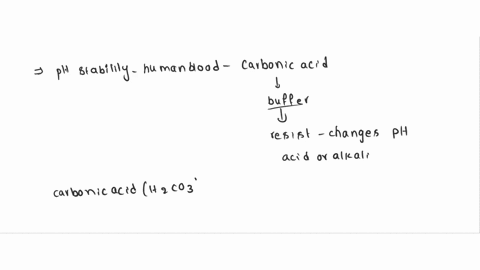 ⇒ pH stability - human blood - carbonic acid
↓
buffer
↓
resist - changes pH
acid or alkali
carbonic acid (H2CO3